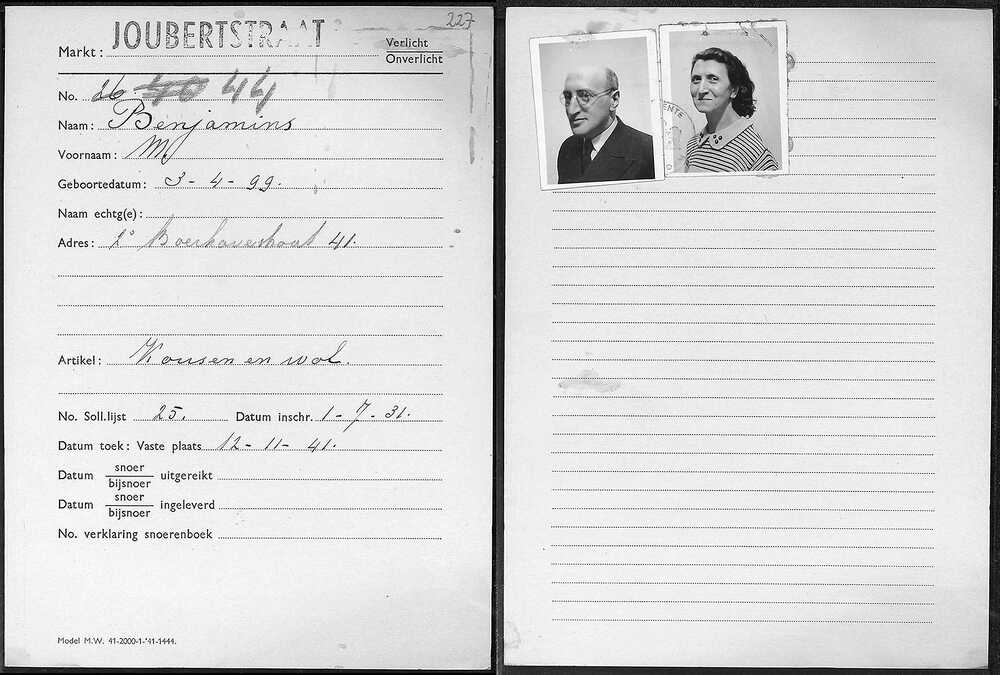 227
Markt: JOUBERTSTRAAT
Verlicht
Onverlicht
No. 26 40 44
Naam: Benjamins
Voornaam: M
Geboortedatum: 3-4-99.
Naam echtg(e):
Adres: 2e Boerhavestraat 41.
Artikel: Kousen en wol.
No. Soll.lijst 25. Datum inschr. 1-7-31.
Datum toek: Vaste plaats 12-11-41.
Datum snoer/bijsnoer uitgereikt
Datum snoer/bijsnoer ingeleverd
No. verklaring snoerenboek
Model M.W. 41-2000-1-'41-1444.